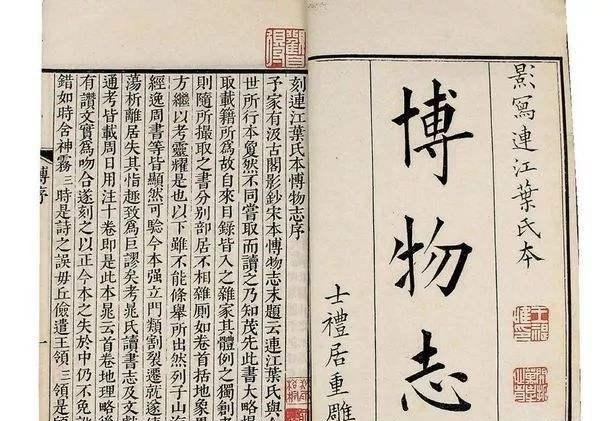 影寫連江葉氏本
博物志
士禮居重雕
刻連江葉氏本博物志序
予家有汲古閣影鈔宋本博物志末題云連江葉氏與
世所行本夐然不同嘗取而讀之乃知茂先此書大略撮
取載籍所爲故自來目錄皆入之雜家其體例之獨創
則隨所撮取之書分別部居不相雜厠如卷首括地象
方繼以考靈耀是也以下雖不能條舉所出然列子山海
經逸周書等皆顯然可驗今本强立門類割裂遷就遂
蕩析離居失其恉趣致爲巨謬矣考晁氏讀書志及文
通考皆載周日用注十卷即是此本晁云首卷地理略後
有讚文實爲吻合遂刻之以正今本之失於中仍不免
錯如時含神霧三時是詩之誤毋丘儉遣王領三領是
博序
一